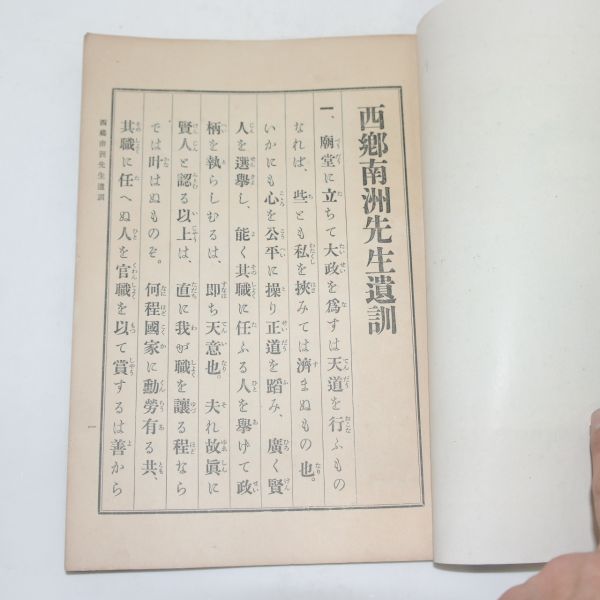 西鄕南洲先生遺訓
一、廟堂に立ちて大政を爲すは天道を行ふもの
なれば、些とも私を挾みては濟まぬもの也。
いかにも心を公平に操り正道を蹈み、廣く賢
人を選擧し、能く其職に任ふる人を擧げて政
柄を執らしむるは、即ち天意也。夫れ故眞に
賢人と認る以上は、直に我が職を讓る程なら
では叶はぬものぞ。何程國家に勳勞有る共、
其職に任へぬ人を官職を以て賞するは善から
西鄕南洲先生遺訓
一